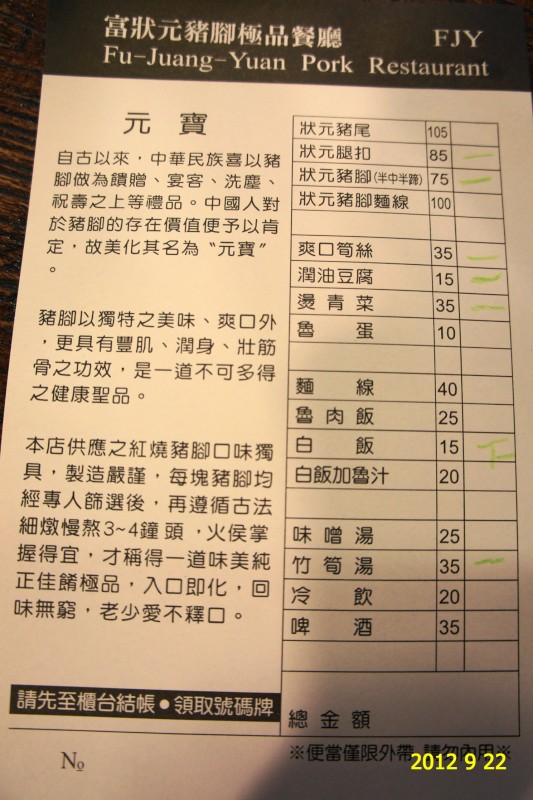 富狀元豬腳極品餐廳 FJY
Fu-Juang-Yuan Pork Restaurant
元寶
自古以來，中華民族喜以豬
腳做為饋贈、宴客、洗塵、
祝壽之上等禮品。中國人對
於豬腳的存在價值便予以肯
定，故美化其名為“元寶”
。
豬腳以獨特之美味、爽口外
，更具有豐肌、潤身、壯筋
骨之功效，是一道不可多得
之健康聖品。
本店供應之紅燒豬腳口味獨
具，製造嚴謹，每塊豬腳均
經專人篩選後，再遵循古法
細燉慢熬3~4鐘頭，火侯掌
握得宜，才稱得一道味美純
正佳餚極品，入口即化，回
味無窮，老少愛不釋口。
請先至櫃台結帳●領取號碼牌
№
狀元豬尾 105
狀元腿扣 85 一
狀元豬腳(半中半蹄) 75 一
狀元豬腳麵線 100
爽口筍絲 35 一
潤油豆腐 15 一
燙青菜 35 一
魯蛋 10
麵線 40
魯肉飯 25
白飯 15 下
白飯加魯汁 20
味噌湯 25
竹筍湯 35 一
冷飲 20
啤酒 35
總金額
※便當僅限外帶 請勿內用※
2012 9 22